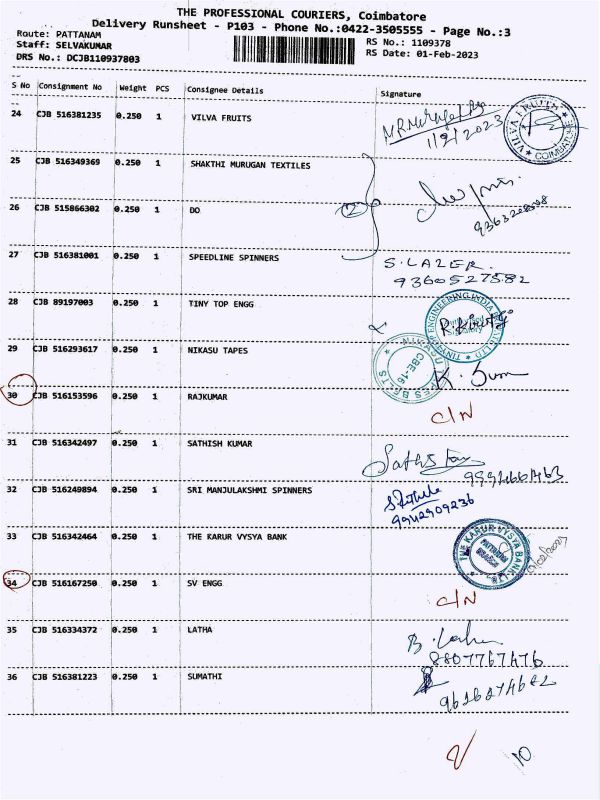 THE PROFESSIONAL COURIERS, Coimbatore
Delivery Runsheet - P103 - Phone No.:0422-3505555 - Page No.:3
Route: PATTANAM
Staff: SELVAKUMAR
DRS No.: DCJB110937803
RS No.: 1109378
RS Date: 01-Feb-2023
S No Consignment No Weight PCS Consignee Details Signature
24 CJB 516381235 0.250 1 VILVA FRUITS
1/2/2023
VILVA FRUITS COIMBATORE
25 CJB 516349369 0.250 1 SHAKTHI MURUGAN TEXTILES
26 CJB 515866302 0.250 1 DO
2
27 CJB 516381001 0.250 1 SPEEDLINE SPINNERS S. LAZER.
9360527582
28 CJB 89197003 0.250 1 TINY TOP ENGG
29 CJB 516293617 0.250 1 NIKASU TAPES
CBE-16
30 CJB 516153596 0.250 1 RAJKUMAR
C/N
31 CJB 516342497 0.250 1 SATHISH KUMAR
32 CJB 516249894 0.250 1 SRI MANJULAKSHMI SPINNERS
9942909236
33 CJB 516342464 0.250 1 THE KARUR VYSYA BANK
THE KARUR VYSYA BANK LTD.
34 CJB 516167250 0.250 1 SV ENGG
C/N
35 CJB 516334372 0.250 1 LATHA
8807767476
36 CJB 516381223 0.250 1 SUMATHI
10